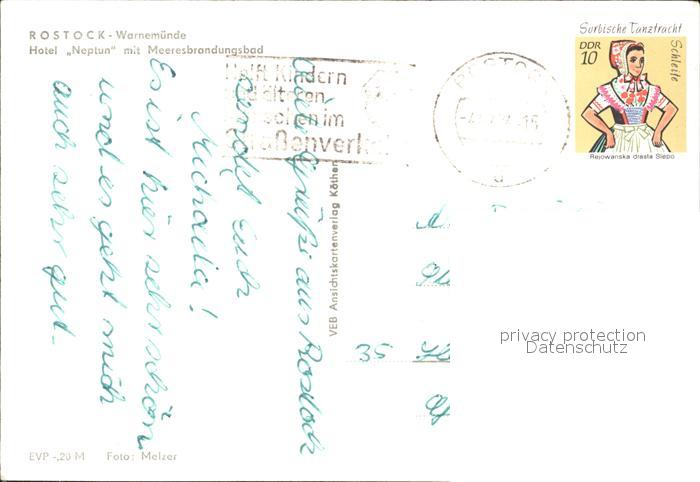 ROSTOCK - Warnemünde
Hotel „Neptun" mit Meeresbrandungsbad
Helft Kindern
und älteren
Menschen im
Straßenverkehr
ROSTOCK
Sorbische Tanztracht
Schleife
DDR
10
Rejowanska drasta Slepo
Viele Grüße aus Rostock
sendet Euch
Michaela!
Es ist hier sehr schön
und es geht mich
auch sehr gut.
VEB Ansichtskartenverlag Köthen
35
privacy protection
Datenschutz
EVP -,20 M Foto: Melzer